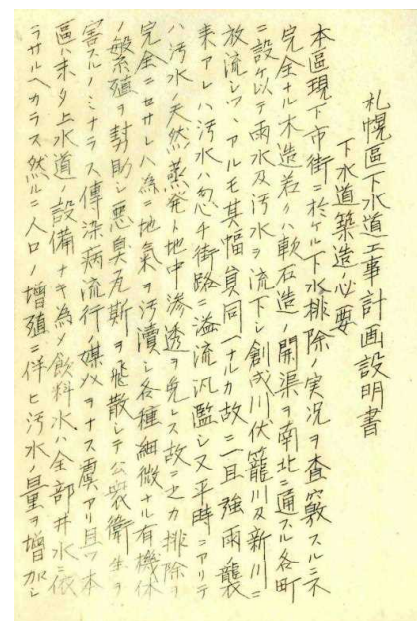 札幌區下水道工事計画説明書
下水道築造必要
本區現下市街ニ於ケル下水排除ノ実况ヲ査覈スルニ不
完全ナル木造若クハ軟石造ノ開渠ヲ南北ニ通スル各町
ニ設ケ以テ雨水及汚水ヲ流下シ創成川伏籠川及新川ニ
放流シツヽアルモ其幅員同一ナルカ故ニ一旦強雨襲
来アレハ汚水ハ忽チ街路ニ溢流汎濫シ又平時ニアリテ
ハ汚水ノ天然蒸発ト地中滲透ヲ免レス故ニ之カ排除ヲ
完全ニセサレハ為ニ地氣ヲ汚瀆シ各種細微ナル有機体
ノ繁殖ヲ幇助シ悪臭瓦斯ヲ飛散シテ公衆衛生ヲ
害スルノミナラス傳染病流行ノ媒介ヲナス虞アリ且ツ本
區ハ未タ上水道ノ設備ナキ為メ飲料水ハ全部井水ニ依
ラサルヘカラス然ルニ人口ノ増殖ニ伴ヒ汚水ノ量ヲ増加シ